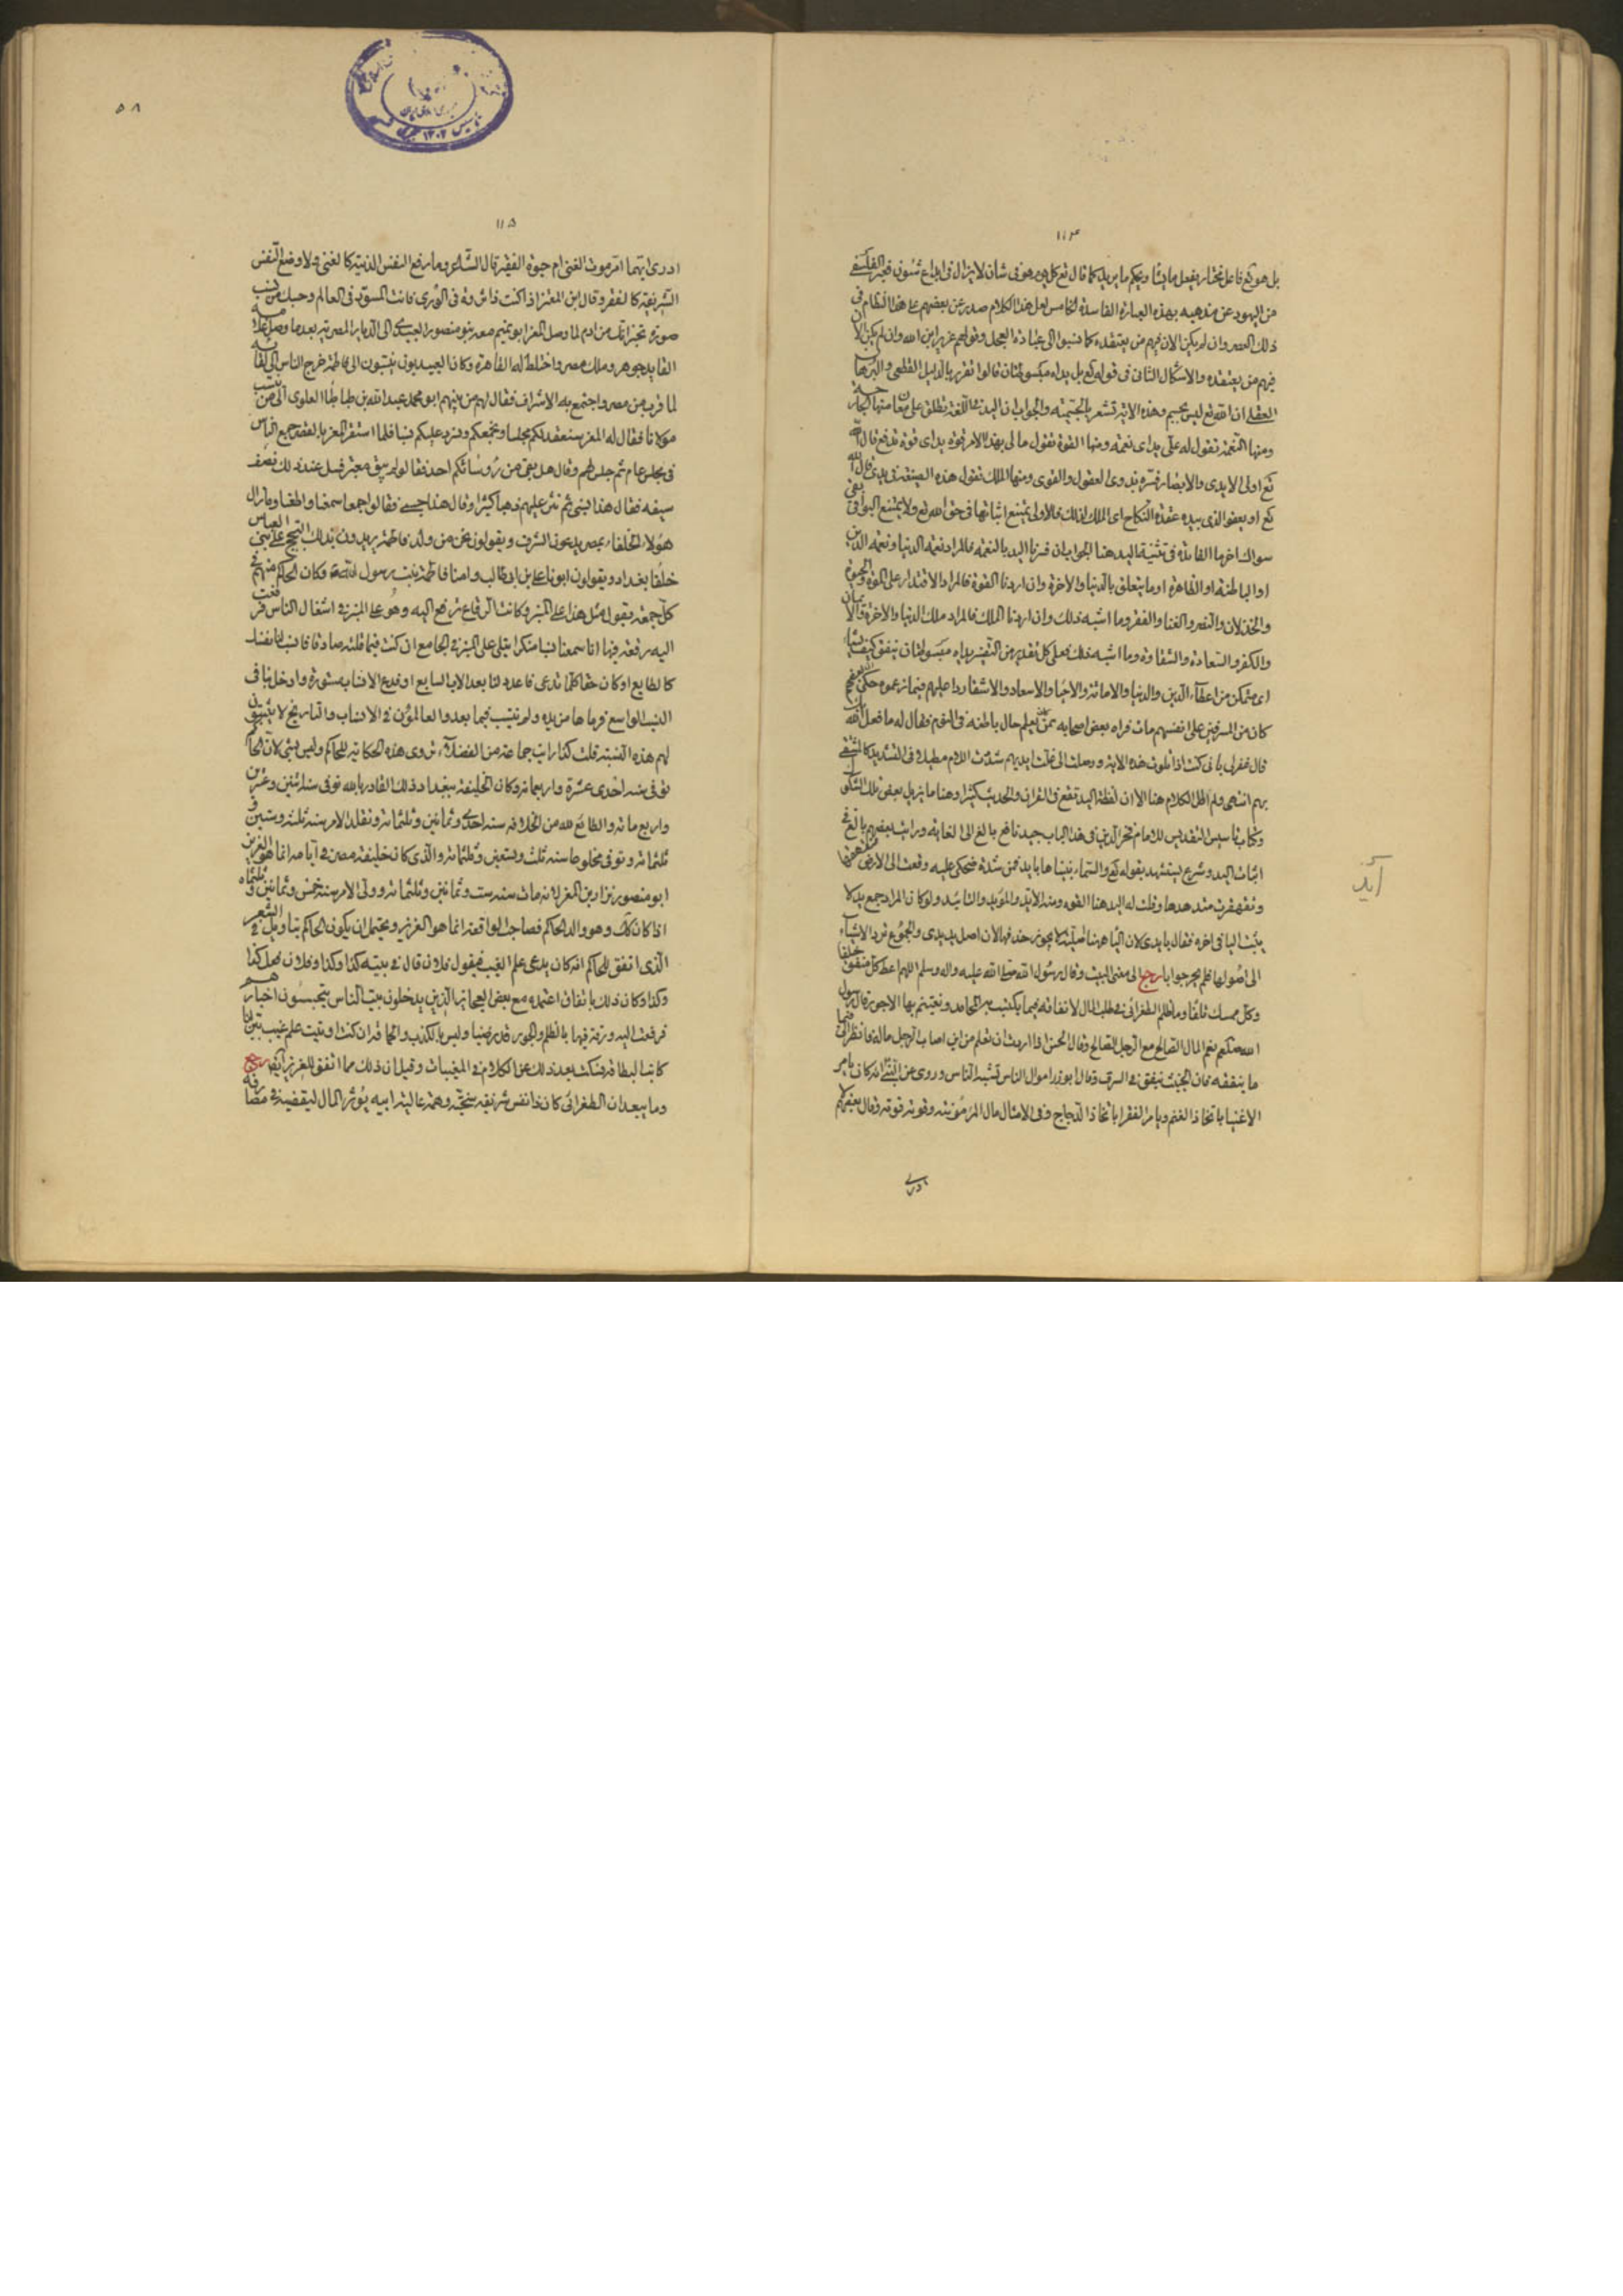 ١١٤
بل هو تع فاعل مختار يفعل ما يشا ويحكم ما يريد كما قال تع كل يوم هو في شان لا يزال في ابداع شئون فعبر الفلسفي
من اليهود عن مذهبه بهذه العبارة الفاسدة الخامس لعل هذا الكلام صدر عن بعضهم على هذا النظام في
ذلك العصر وان لم يكن الان فيهم من يعتقده كما نسبوا الى عبادة العجل وقولهم عزير ابن الله وان لم يكن الان
فيهم من يعتقده والاشكال الثاني في قوله تع بل يداه مبسوطتان قالوا تقرر بالدليل القطعي والبرهان
العقلي ان الله تع ليس بجسم وهذه الاية تشعر بالجسمية والجواب ان اليد في اللغة تطلق على معان منها الجارحة
ومنها النعمة تقول له علي يد اي نعمة ومنها القوة تقول ما لي بهذا الامر قوة يد اي قوة تدفع قال الله
تع اولى الايدي والابصار فسره بذوي العقول والقوى ومنها الملك تقول هذه الصنيعة في يدي قال الله
تع او يعفو الذي بيده عقدة النكاح اي الملك لذلك فالاولى يمتنع اثباتها في حق الله تع ولا يمتنع البواقي بقي
سؤال اخر ما الفائدة في تثنية اليد هنا الجواب ان فسرنا اليد بالنعمة فالمراد نعمة الدنيا ونعمة الدين
او الباطنة او الظاهرة او ما يتعلق بالدنيا والاخرة وان اردنا القوة فالمراد الاقتدار على الموت والحيوة
والخذلان والنصر والغنا والفقر وما اشبه ذلك وان اردنا الملك فالمراد ملك الدنيا والاخرة والايمان
والكفر والسعادة والشقاوة وما اشبه ذلك فعلى كل تقدير من التفسير يداه مبسوطتان ينفق كيف يشاء
اي متمكن من اعطاء الدين والدنيا والاماتة والاحيا والاسعاد والاشقا ردا عليهم فيما زعموه حكي ان بعضهم
كان من المسرفين على انفسهم مات فراه بعض اصحابه ممن يعلم حال باطنه في النوم فقال له ما فعل الله بك
قال غفر لي باني كنت اذا تلوت هذه الاية ووصلت الى غلت ايديهم شددت اللام مطيلا في التشديد كالمتشفي
بهم انتهى ولم اطل الكلام هنا الا ان لفظة اليد تقع في القران والحديث كثيرا وهنا ما يزيل بعض تلك الشكوك
وكتاب تاسيس التقديس للامام فخر الدين في هذا الباب جيد نافع بالغ الى الغاية ورايت بعضهم بالغ في
اثبات اليد وشرع يستشهد بقوله تع والسماء بنيناها بايد فمن شدة ضحكي عليه وقعت الى الارض
وقلت له اليد هنا القوة ومنه الايد والمؤيد والتاييد ولو كان المراد جمع يد لا
يثبت اليا في اخره فقال يا يدي لان اليا هنا اصلية لا يجوز حذفها لان اصل يد يدي والجموع ترد الاشياء
الى اصولها فلم يحر جوابا رجع الى معنى البيت وقال رسول الله صلى الله عليه واله وسلم اللهم اعط كل منفق خلفا
وكل ممسك تلفا وما ظلم الطغرائي في طلب المال لانفاقه فيما يكتسب به المحامد ويغتنم بها الاجور قال رسول
الله صلعم نعم المال الصالح مع الرجل الصالح وقال الحسن اذا اردت ان تعلم من اين اصاب الرجل ماله فانظر الى فيما
ما ينفقه فان الخبيث ينفق في السرف وقال ابو ذر اموال الناس تشبه الناس وروي عن النبي انه كان يامر
الاغنيا باتخاذ الغنم ويامر الفقرا باتخاذ الدجاج وفي الامثال مال المر موئنه وقوته قوته وقال بعضهم لا
ادري
آيد
٥٨
تاسيس ١٣٠٢
١١٥
ادري ايهما امر موت الغني ام حيوة الفقير قال الشاعر وما رفع النفس الدنية كالغنى ولا وضع النفس
الشريفة كالفقر وقال ابن المعتز اذا كنت ذا ثروة في الورى فانت المسود في العالم وحسبك من نسب
صورة تخبر انك من ادم لما وصل المعز ابو تميم معد بن منصور العبيدي الى الديار المصرية بعد ما وصل غلامه
القايد جوهر وملك مصر واختط له القاهرة وكان العبيديون ينتسبون الى فاطمة خرج الناس الى لقائه
لما قرب من مصر واجتمع به الاشراف فقال لهم من بينهم ابو محمد عبد الله بن طباطبا العلوي الى من ينتسب
مولانا فقال له المعز سنعقد لكم مجلسا ونجمعكم ونسرد عليكم نسبنا فلما استقر المعز بالقصر جمع الناس
في مجلس عام ثم جلس لهم وقال هل بقي من رؤسائكم احد فقالوا لم يبق معتبر فسل عند ذلك نصف
سيفه فقال هذا نسبي ثم نثر عليهم ذهبا كثيرا وقال هذا حسبي فقالوا جميعا سمعنا واطعنا وما زال
هؤلاء الخلفاء بمصر يدعون الشرف ويقولون نحن من ولد فاطمة يريدون بذلك التبجح على بني العباس
خلفا بغداد ويقولون ابونا علي بن ابي طالب وامنا فاطمة بنت رسول الله وكان الحاكم منهم في
كل جمعة يقول مثل هذا على المنبر وكانت الرقاع ترفع اليه وهو على المنبر في اشغال الناس فرفعت
اليه رقعة فيها انا سمعنا نسبا منكرا يتلى على المنبر في الجامع ان كنت فيما قلته صادقا فانسب لنا نفسك
كالطايع او كان حقا كلما تدعي فاعدد لنا بعد الاب السابع او فدع الانساب مستورة وادخل بنا في
النسب الواسع فرماها من يده ولم ينتسب فيما بعد والعالمون في الانساب والتاريخ لا يثبتون
لهم هذه النسبة قلت كذا رايت جماعة من الفضلاء يروي هذه الحكاية للحاكم وليس بشي لان الحاكم
توفي سنة احدى عشرة واربعمائة وكان الخليفة ببغداد ذلك القادر بالله توفي سنة اثنين وعشرين
واربع مائة والطايع لله من الخلافة سنة احدى وثمانين وثلثمائة وتقلد الامر سنة ثلث وستين و
ثلثمائة وتوفي مخلوعا سنة ثلث وتسعين وثلثمائة والذي كان خليفة مصر في ايامه انما هو العزيز
ابو منصور نزار بن المعز لانه مات سنة ست وثمانين وثلثمائة وولي الامر سنة خمس وثمانين وثلثمائة
اذا كان كك وهو والد الحاكم فصاحب الواقعة انما هو العزيز ويحتمل ان يكون الحاكم بتاويل في الشعر
الذي اتفق للحاكم انه كان يدعي علم الغيب فيقول فلان قال في بيته كذا وكذا وفلان فعل كذا
وكذا وكان ذلك باتفاق اعتمده مع بعض العجائز الذين يدخلون بيت الناس يتجسسون اخبارهم
فرفعت اليه ورقة فيها بالظلم والجور قد رضينا وليس بالكذب والحماقة ان كنت اوتيت علم غيب بين لنا
كاتب البطاقة فسكت بعد ذلك عن الكلام في المغيبات وقيل ان ذلك مما اتفق للعزيز ايضا رجع
وما يبعد ان الطغرائي كان ذا نفس شريفة سخية وهمة عالية ابية يؤثر المال ليقضيه في مصارفه